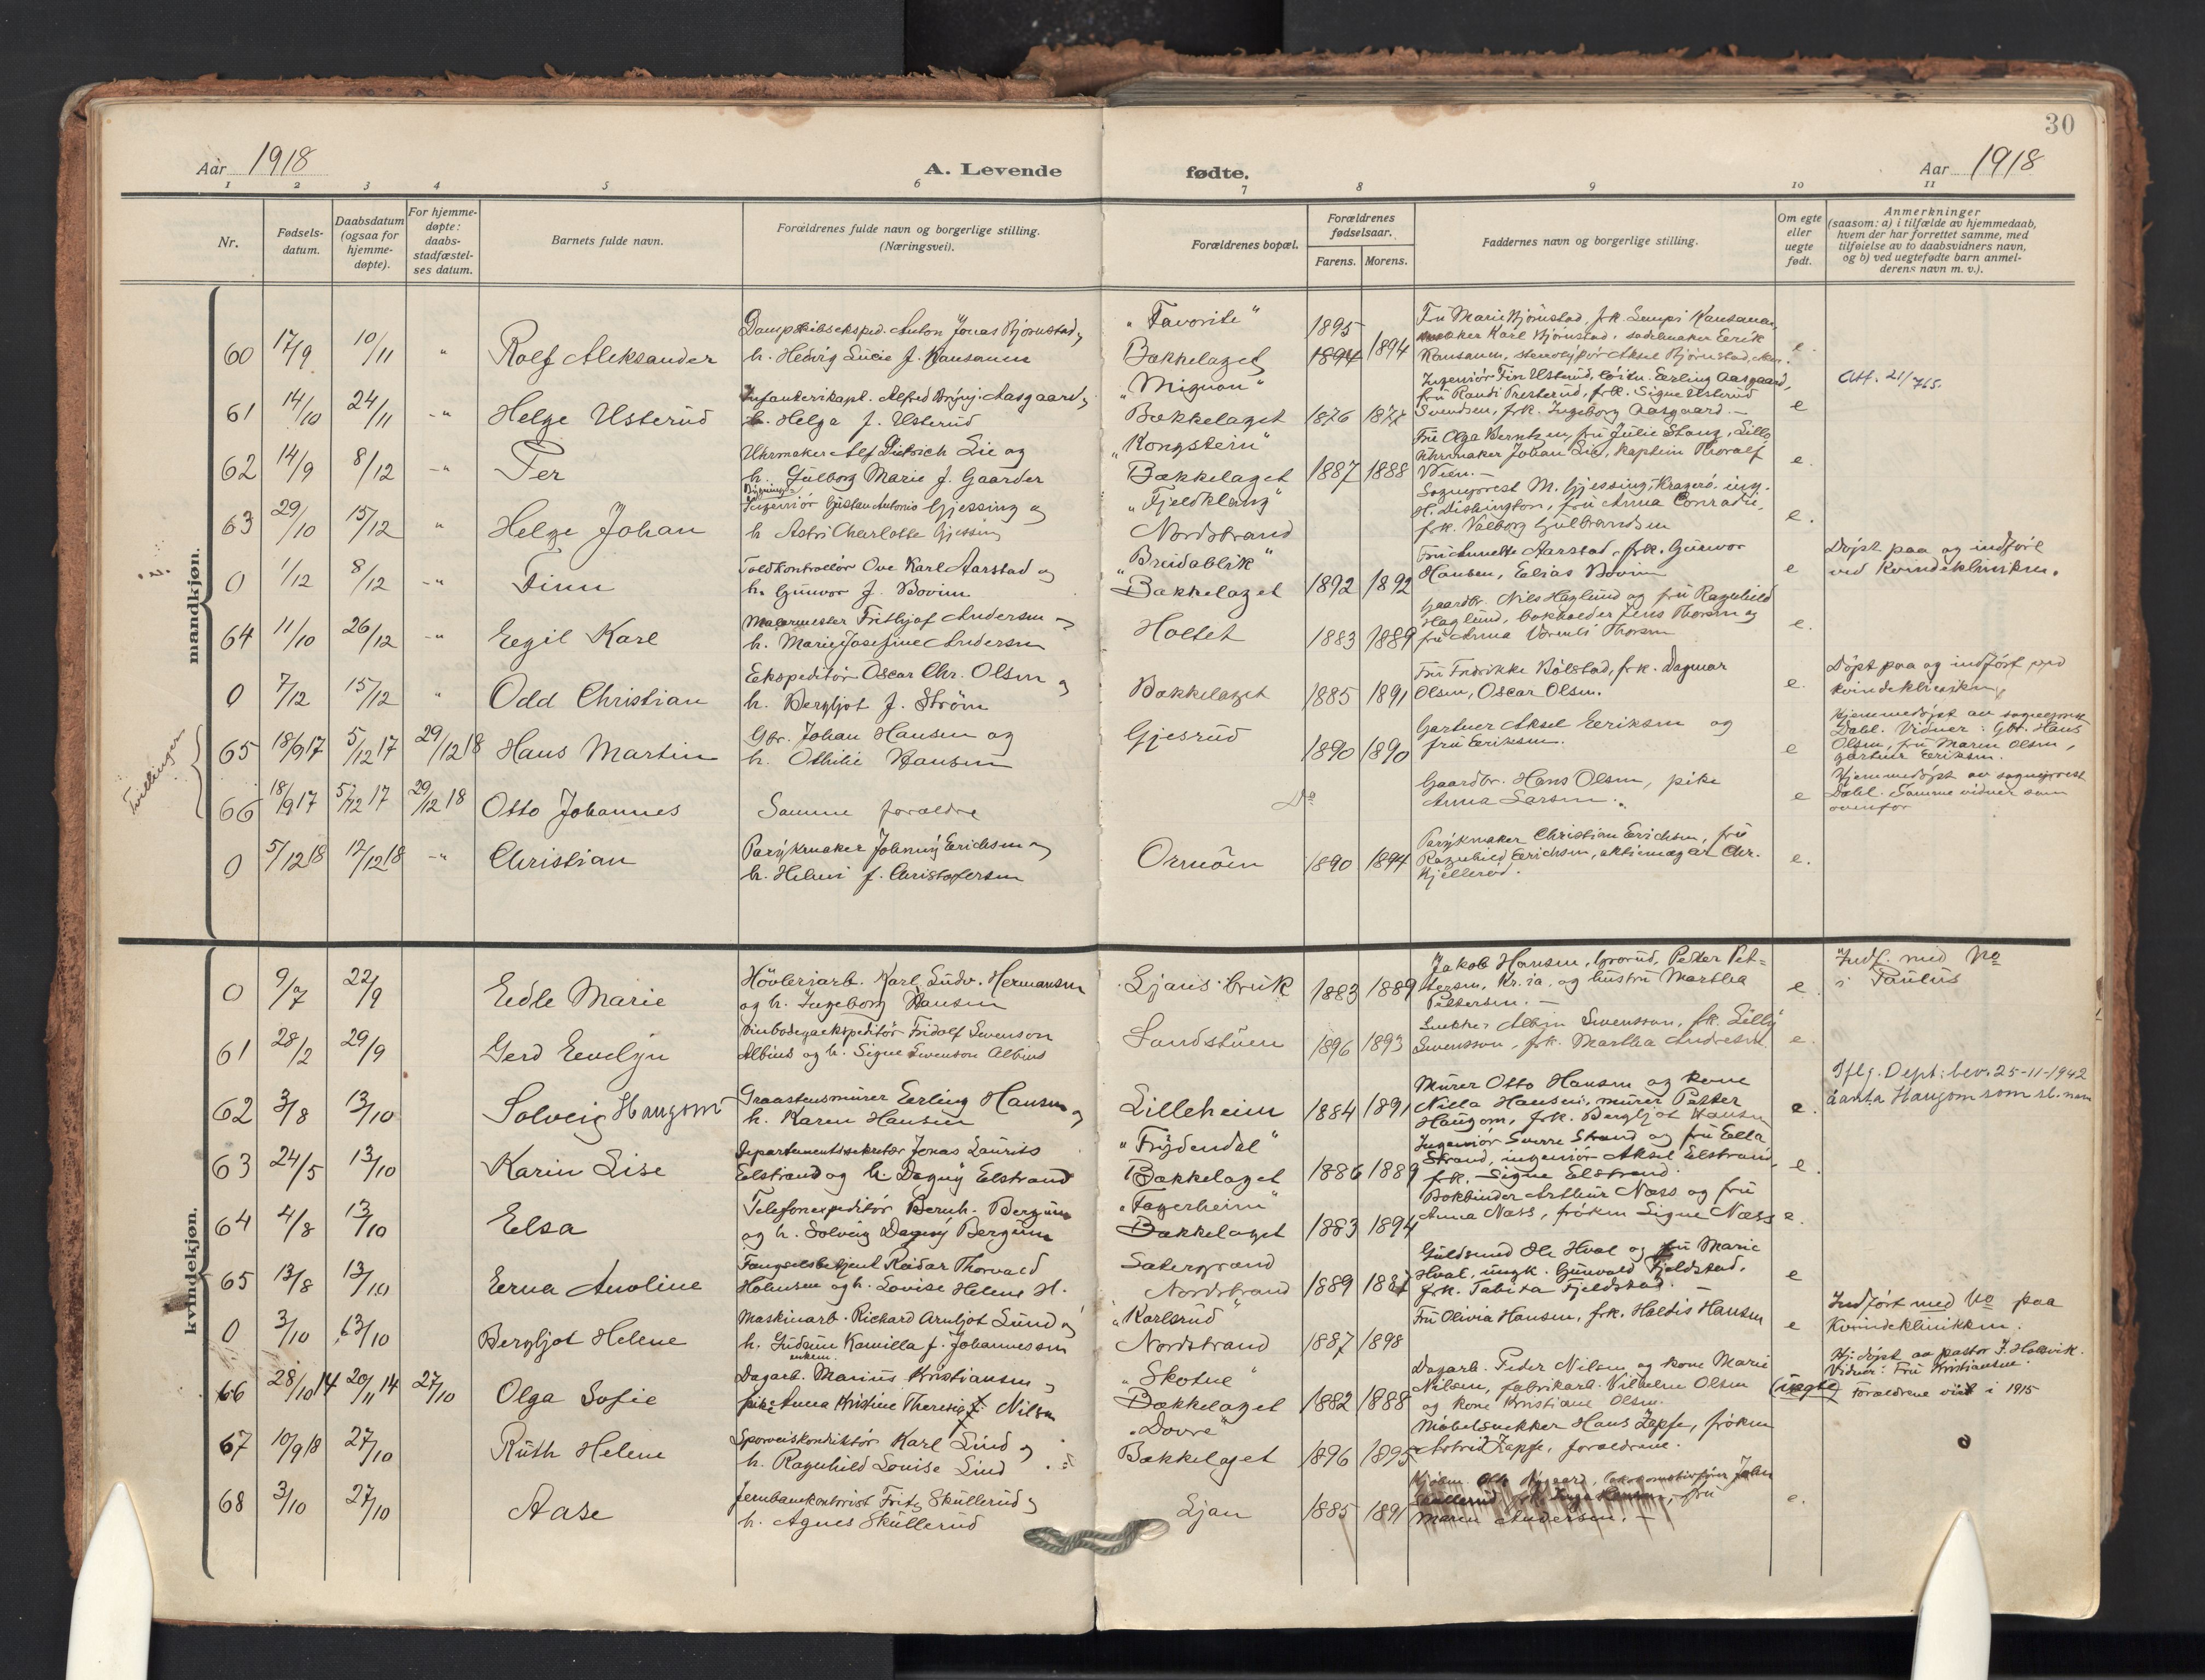 30
Aar 1918
A. Levende fødte.
Aar 1918
1 2 3 4 5 6 7 8 9 10 11
Nr.
Fødsels-
datum.
Daabsdatum
(ogsaa for
hjemme-
døpte).
For hjemme-
døpte:
daabs-
stadfæstel-
ses datum.
Barnets fulde navn.
Forældrenes fulde navn og borgerlige stilling.
(Næringsvei).
Forældrenes bopæl.
Forældrenes
fødselsaar.
Farens. Morens.
Faddernes navn og borgerlige stilling.
Om egte
eller
uegte
født.
Anmerkninger
(saasom: a) i tilfælde av hjemmedaab,
hvem der har forrettet samme, med
tilføielse av to daabsvidners navn,
og b) ved uegtefødte barn anmel-
derens navn m. v.).
mandkjøn.
60 17/9 10/11 " Rolf Aleksander
Dampskibseksped. Anton Jonas Bjørnstad og
h. Hedvig Lucie f. Kansanen
"Favorite"
Bækkelaget
1895
1894 1894
Fru Marie Bjørnstad, frk. Lempi Kansanen,
Karl Bjørnstad, sadelmaker Eerik
Kansanen, stereotypør Aksel Bjørnstad,
e.
61 14/10 24/11 -" Helge Usterud
Infanterikapt. Alfred Aasgaard og
h. Helga f. Usterud
"Mignon"
Bækkelaget 1876 1877
Ingeniør Finn Usterud, løitn. Erling Aasgaard,
fru Randi Presterud, frk. Signe Usterud
Svendsen, frk. Ingeborg Aasgaard.-
e
Att. 21/765.
62 14/9 8/12 -" Per
Uhrmaker Alf Dietrich Lie og
h. Gulborg Marie f. Gaarder
"Kongstein"
Bækkelaget 1887 1888
Fru Olga Berntzen, fru Julie Stang, Lillo
Uhrmaker Johan Lie, kaptein Thoralf
Wien.-
e.
63 29/10 15/12 " Helge Johan
Bygnings-
Ingeniør Gustav Antonio Gjessing og
h. Astri Charlotte Gjessing
"Fjeldklang"
Nordstrand
Sogneprest M. Gjessing, Kragerø, ing.
H. Dishington, fru Anna Conradi,
frk. Valborg Gulbrandsen
e.
0 1/12 8/12 -" Finn
Toldkontrollør Ove Karl Aarstad og
h. Gunvor f. Bovim
"Breidablik"
Bækkelaget 1892 1892
Fru Annette Aarstad, frk. Gunvor
Hansen, Elias Bovim
e
Døpt paa og indført
ved Kvindeklinikken.
64 11/10 26/12 -" Egil Karl
Malermester Frithjof Andersen og
h. Marie Josefine Andersen
Holtet
1883 1889
Gaardbr. Nils Haglund og fru Ragnhild
Haglund, bokholder Jens Thorsen og
fru Anna Thorsen
e.
0 7/12 15/12 " Odd Christian
Ekspeditør Oscar Chr. Olsen og
h. Bergljot f. Strøm
Bækkelaget 1885 1891
Fru Fredrikke Bølstad, frk. Dagmar
Olsen, Oscar Olsen.
e.
Døpt paa og indført ved
kvindeklinikken
Tvillinger
65 18/9 17 5/12 17 29/12 18 Hans Martin
Gbr. Johan Hansen og
h. Othilie Hansen
Gjesrud
1890 1890
Gartner Aksel Eriksen og
fru Eriksen.
e
Hjemmedøpt av sogneprest
Dahl. Vidner: Gbr. Hans
Olsen, fru Maren Olsen,
gartner Eriksen.
66 18/9 17 5/12 17 29/12 18 Otto Johannes
Samme forældre
Do
Gaardbr. Hans Olsen, pike
Anna Larsen.
e
Hjemmedøpt av sogneprest
Dahl. Samme vidner som
ovenfor
0 5/12 18 12/12 18 -" Christian
Parykmaker Johnny Erichsen og
h. Helmi f. Christofersen
Ormøen 1890 1894
Parykmaker Christian Erichsen, fru
Ragnhild Erichsen, aktiemægler Chr.
Kjellerød.
e.
kvindekjøn.
0 9/7 22/9 Edle Marie
Høvleriarb. Karl Ludv. Hermansen
og h. Ingeborg Hansen
Ljans bruk 1883 1889
Jakob Hansen, Grorud, Peder Pet-
tersen, Kr.ia, og hustru Martha
Pettersen.-
e
Indf. med No
i Paulus
61 28/2 29/9 Gerd Evelyn
Vinbodegaekspeditør Fridolf Svenson
Albius og h. Signe Svenson Albius
Sandstuen 1896 1893
Snekker Albin Svensson, frk. Lilly
Svensson, frk. Martha Andresen.
e.
62 3/8 13/10 Solveig Haugom
Graastensmurer Erling Hansen og
h. Karen Hansen
Lilleheim 1884 1891
Murer Otto Hansen og kone
Nilla Hansen, murer Petter
Haugom, frk. Bergljot Hansen
e.
Iflg. Dept. bev. 25-11-1942
å anta Haugom som sl. navn
63 24/5 13/10 Karin Lise
Departementssekretær Jonas Laurits
Elstrand og h. Dagny Elstrand
"Frydendal"
Bækkelaget 1886 1889
Ingeniør Sverre Strand og fru Ella
Strand, ingeniør Aksel Elstrand,
frk. Signe Elstrand.
e.
64 4/8 13/10 Elsa
Telefonexpeditør Bernh. Bergum
og h. Solveig Dagny Bergum
"Fagerheim"
Bækkelaget 1883 1894
Bokbinder Arthur Næss og fru
Anna Næss, frøken Signe Næss
e.
65 13/8 13/10 Erna Anoline
Fængselsbetjent Reidar Thorvald
Holmsen og h. Lovise Helene H.
Sætergrand
Nordstrand 1889
Guldsmed Ole Hval og fru Marie
Hval, ungk. Gunvald Fjeldstad,
frk. Tabita Fjeldstad.-
e
0 3/10 13/10 Bergljot Helene
Maskinarb. Richard Arnljot Lund og
h. Gudrun Kamilla f. Johannessen
"Karlsrud"
Nordstrand 1887 1898
Fru Olivia Hansen, frk. Haldis Hansen
e
Indført med No paa
Kvindeklinikken.
66 28/10 14 20/11 14 27/10 Olga Sofie
enkem.
Dagarb. Marius Kristiansen og
pike Anna Kristine Theresie f. Nilsen
"Skotne"
Bækkelaget 1882 1888
Dagarb. Peder Nilsen og kone Marie
Nilsen, fabrikarb. Vilhelm Olsen
og kone Kristiane Olsen.
(uegte)
Hj. døpt av pastor J. Hallvik.
Vidner: Fru Kristiansen.
forældrene viet i 1915
67 10/9 18 27/10 Ruth Helene
Sporveiskonduktør Karl Lind og
h. Ragnhild Louise Lind
"Dovre"
Bækkelaget 1896 1895
Møbelsnekker Hans Zapfe, frøken
Astrid Zapfe, forældrene.
68 3/10 27/10 Aase
Jernbanekontorist Fritz Skullerud og
h. Agnes Skullerud
Ljan 1885 1891
Kjøbm. Otto Nygaard, lokomotivfører John
Skullerud, frk. Inga Hansen, fru
Maren Andersen.-
e.